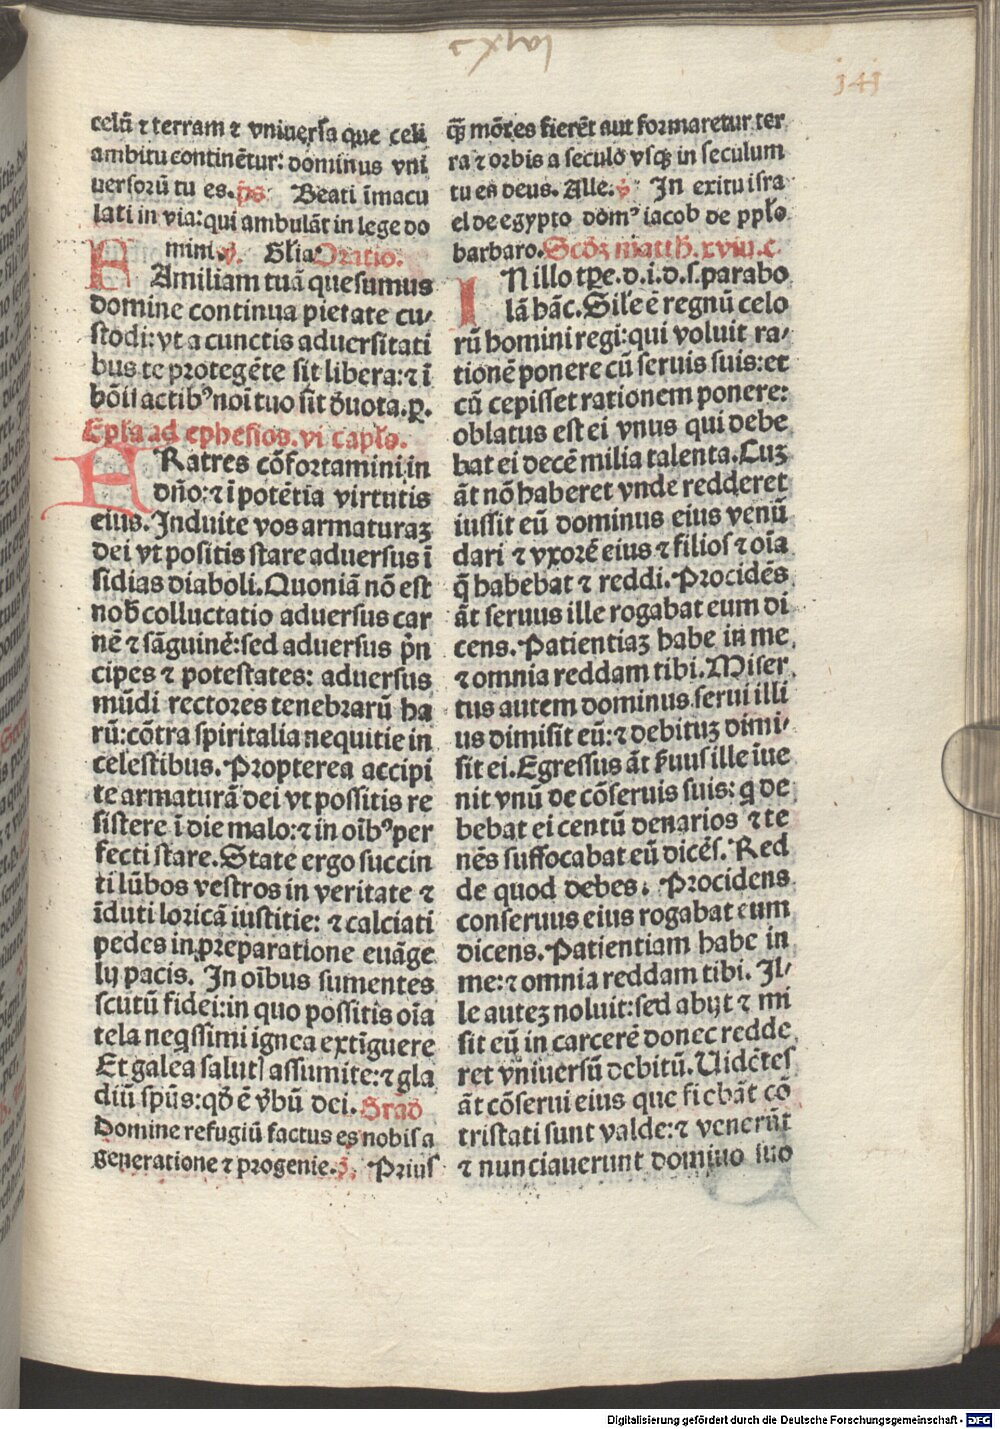 cxlvi
141
celū ⁊ terram ⁊ vniuersa que celi
ambitu continētur: dominus vni
uersorū tu es. p̄s Beati īmacu
lati in via: qui ambulāt in lege do
mini. ꝟ. Gl̄ia Oratio.
FAmiliam tuā quesumus
domine continua pietate cu⸗
stodi: vt a cunctis aduersitati
bus te protegēte sit libera: ⁊ ī
bōis actibꝰ noī tuo sit ðuota. ꝑ.
Epl̄a ad ephesios. vi capl̄o.
FRatres cōfortamini in
dn̄o: ⁊ ī potētia virtutis
eius. Induite vos armaturaꝫ
dei vt positis stare aduersus ī
sidias diaboli. Quoniā nō est
nob̄ colluctatio aduersus car
nē ⁊ sāguinē: sed aduersus p̄n
cipes ⁊ potestates: aduersus
mūdi rectores tenebrarū ha
rū: cōtra spiritalia nequitie in
celestibus. Propterea accipi
te armaturā dei vt possitis re
sistere ī die malo: ⁊ in oībꝰ per
fecti stare. State ergo succin
ti lūbos vestros in veritate ⁊
īduti loricā iustitie: ⁊ calciati
pedes in preparatione euāge
lij pacis. In oībus sumentes
scutū fidei: in quo possitis oīa
tela neq̄ssimi ignea extīguere
Et galea salutꝭ assumite: ⁊ gla
diū sp̄us: qð ē ꝟbū dei. Grað
Domine refugiū factus es nobis a
generatione ⁊ progenie. ꝟ. Prius
q̄ꝫ mōtes fierēt aut formaretur ter
ra ⁊ orbis a seculo vsqꝫ in seculum
tu es deus. Alle. ꝟ In exitu isra
el de egypto domꝰ iacob de ppl̄o
barbaro. Scðꝫ matth. xviij. c.
INillo tp̄e. d. i. d. s. parabo
lā hāc. Sile ē regnū celo
rū homini regi: qui voluit ra⸗
tionē ponere cū seruis suis: et
cū cepisset rationem ponere:
oblatus est ei vnus qui debe
bat ei decē milia talenta. Cuꝫ
āt nō haberet vnde redderet
iussit eū dominus eius venū
dari ⁊ vxorē eius ⁊ filios ⁊ oīa
q̄ habebat ⁊ reddi. Procidēs
āt seruus ille rogabat eum di
cens. Patientiaꝫ habe in me
⁊ omnia reddam tibi. Miser
tus autem dominus serui illi
us dimisit eū: ⁊ debituꝫ dimi⸗
sit ei. Egressus āt ẜuus ille īue
nit vnū de cōseruis suis: q̇ de
bebat ei centū denarios ⁊ te
nēs suffocabat eū dicēs. Red
de quod debes. Procidens
conseruus eius rogabat eum
dicens. Patientiam habe in
me: ⁊ omnia reddam tibi. Il⸗
le auteꝫ noluit: sed abijt ⁊ mi
sit eū in carcerē donec redde
ret vniuersū debitū. Uidētes
āt cōserui eius que fiebāt cō
tristati sunt valde: ⁊ venerūt
⁊ nunciauerunt domino suo
Digitalisierung gefördert durch die Deutsche Forschungsgemeinschaft - DFG